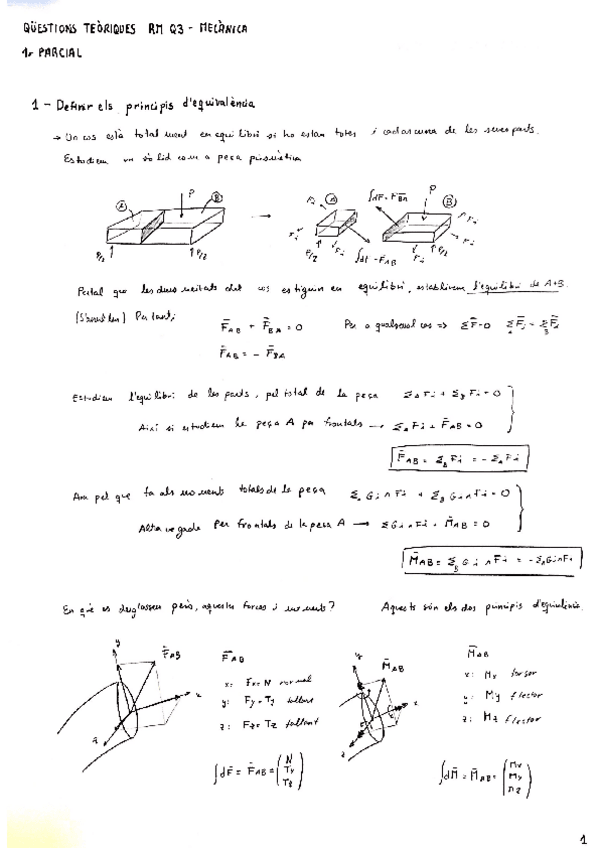 QÜESTIONS TEÒRIQUES RM Q3 - MECÀNICA
1r PARCIAL
1 - Definir els principis d'equivalència
→ Un cos està totalment en equilibri si ho estan totes i cadascuna de les seves parts.
Estudiem un sòlid com a peça prismàtica
A B P P/2 P/2 →
A B P ∫dF = F̄BA ∫dF = F̄AB Fi Fi Fi Fi P/2 P/2
Per tal que les dues meitats del cos estiguin en equilibri, establirem l'equilibri de A+B.
Per tant; F̄AB + F̄BA = 0 Per a qualsevol cos => ΣF̄=0
F̄AB = - F̄BA
Estudiem l'equilibri de les parts, pel total de la peça ΣA Fi + ΣB Fi = 0
Així si estudiem la peça A per frontals → ΣA Fi + F̄AB = 0
F̄AB = ΣB Fi = - ΣA Fi
Ara pel que fa als moments totals de la peça ΣA Gi ∧ Fi + ΣB Gi ∧ Fi = 0
Altra vegada per frontals de la peça A → ΣGi ∧ Fi + M̄AB = 0
M̄AB = ΣB Gi ∧ Fi = - ΣA Gi ∧ Fi
En què es desglossen però, aquestes forces i moments? Aquests són els dos principis d'equivalència.
y F̄AB x z
F̄AB
x: Fx = N normal
y: Fy = Ty tallant
z: Fz = Tz tallant
∫dF̄ = F̄AB = (N Ty Tz)
y M̄AB x z
M̄AB
x: Mx torsor
y: My flector
z: Mz flector
∫dM̄ = M̄AB = (Mx My Mz)
1